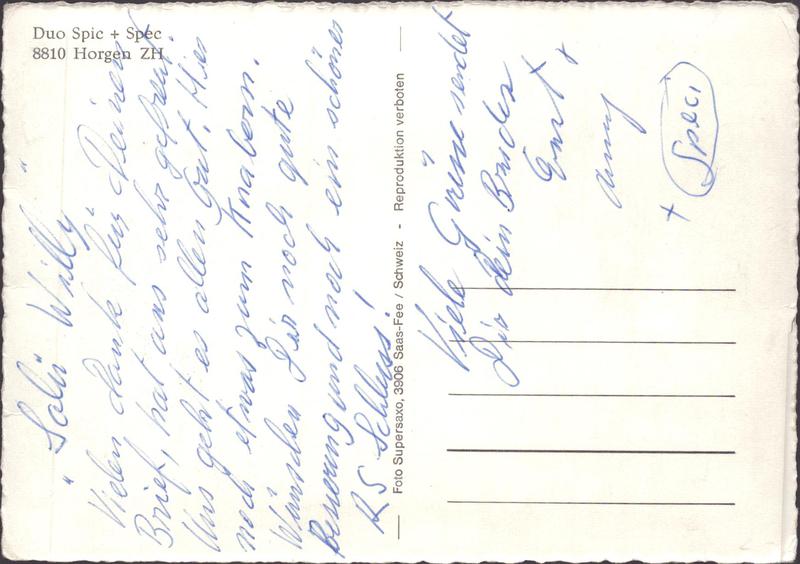 Duo Spic + Spec
8810 Horgen ZH
"Salü Willy"
Vielen dank für Deinen
Brief, hat uns sehr gefreut.
Uns geht es allen Gut. Hier
noch etwas zum Knabern.
Wünschen Dir noch gute
Besserung und noch ein schönes
RS Schluss!
Foto Supersaxo, 3906 Saas-Fee / Schweiz - Reproduktion verboten
Viele Grüsse sendet
Dir dein Bruder
Ernst +
+ Speci